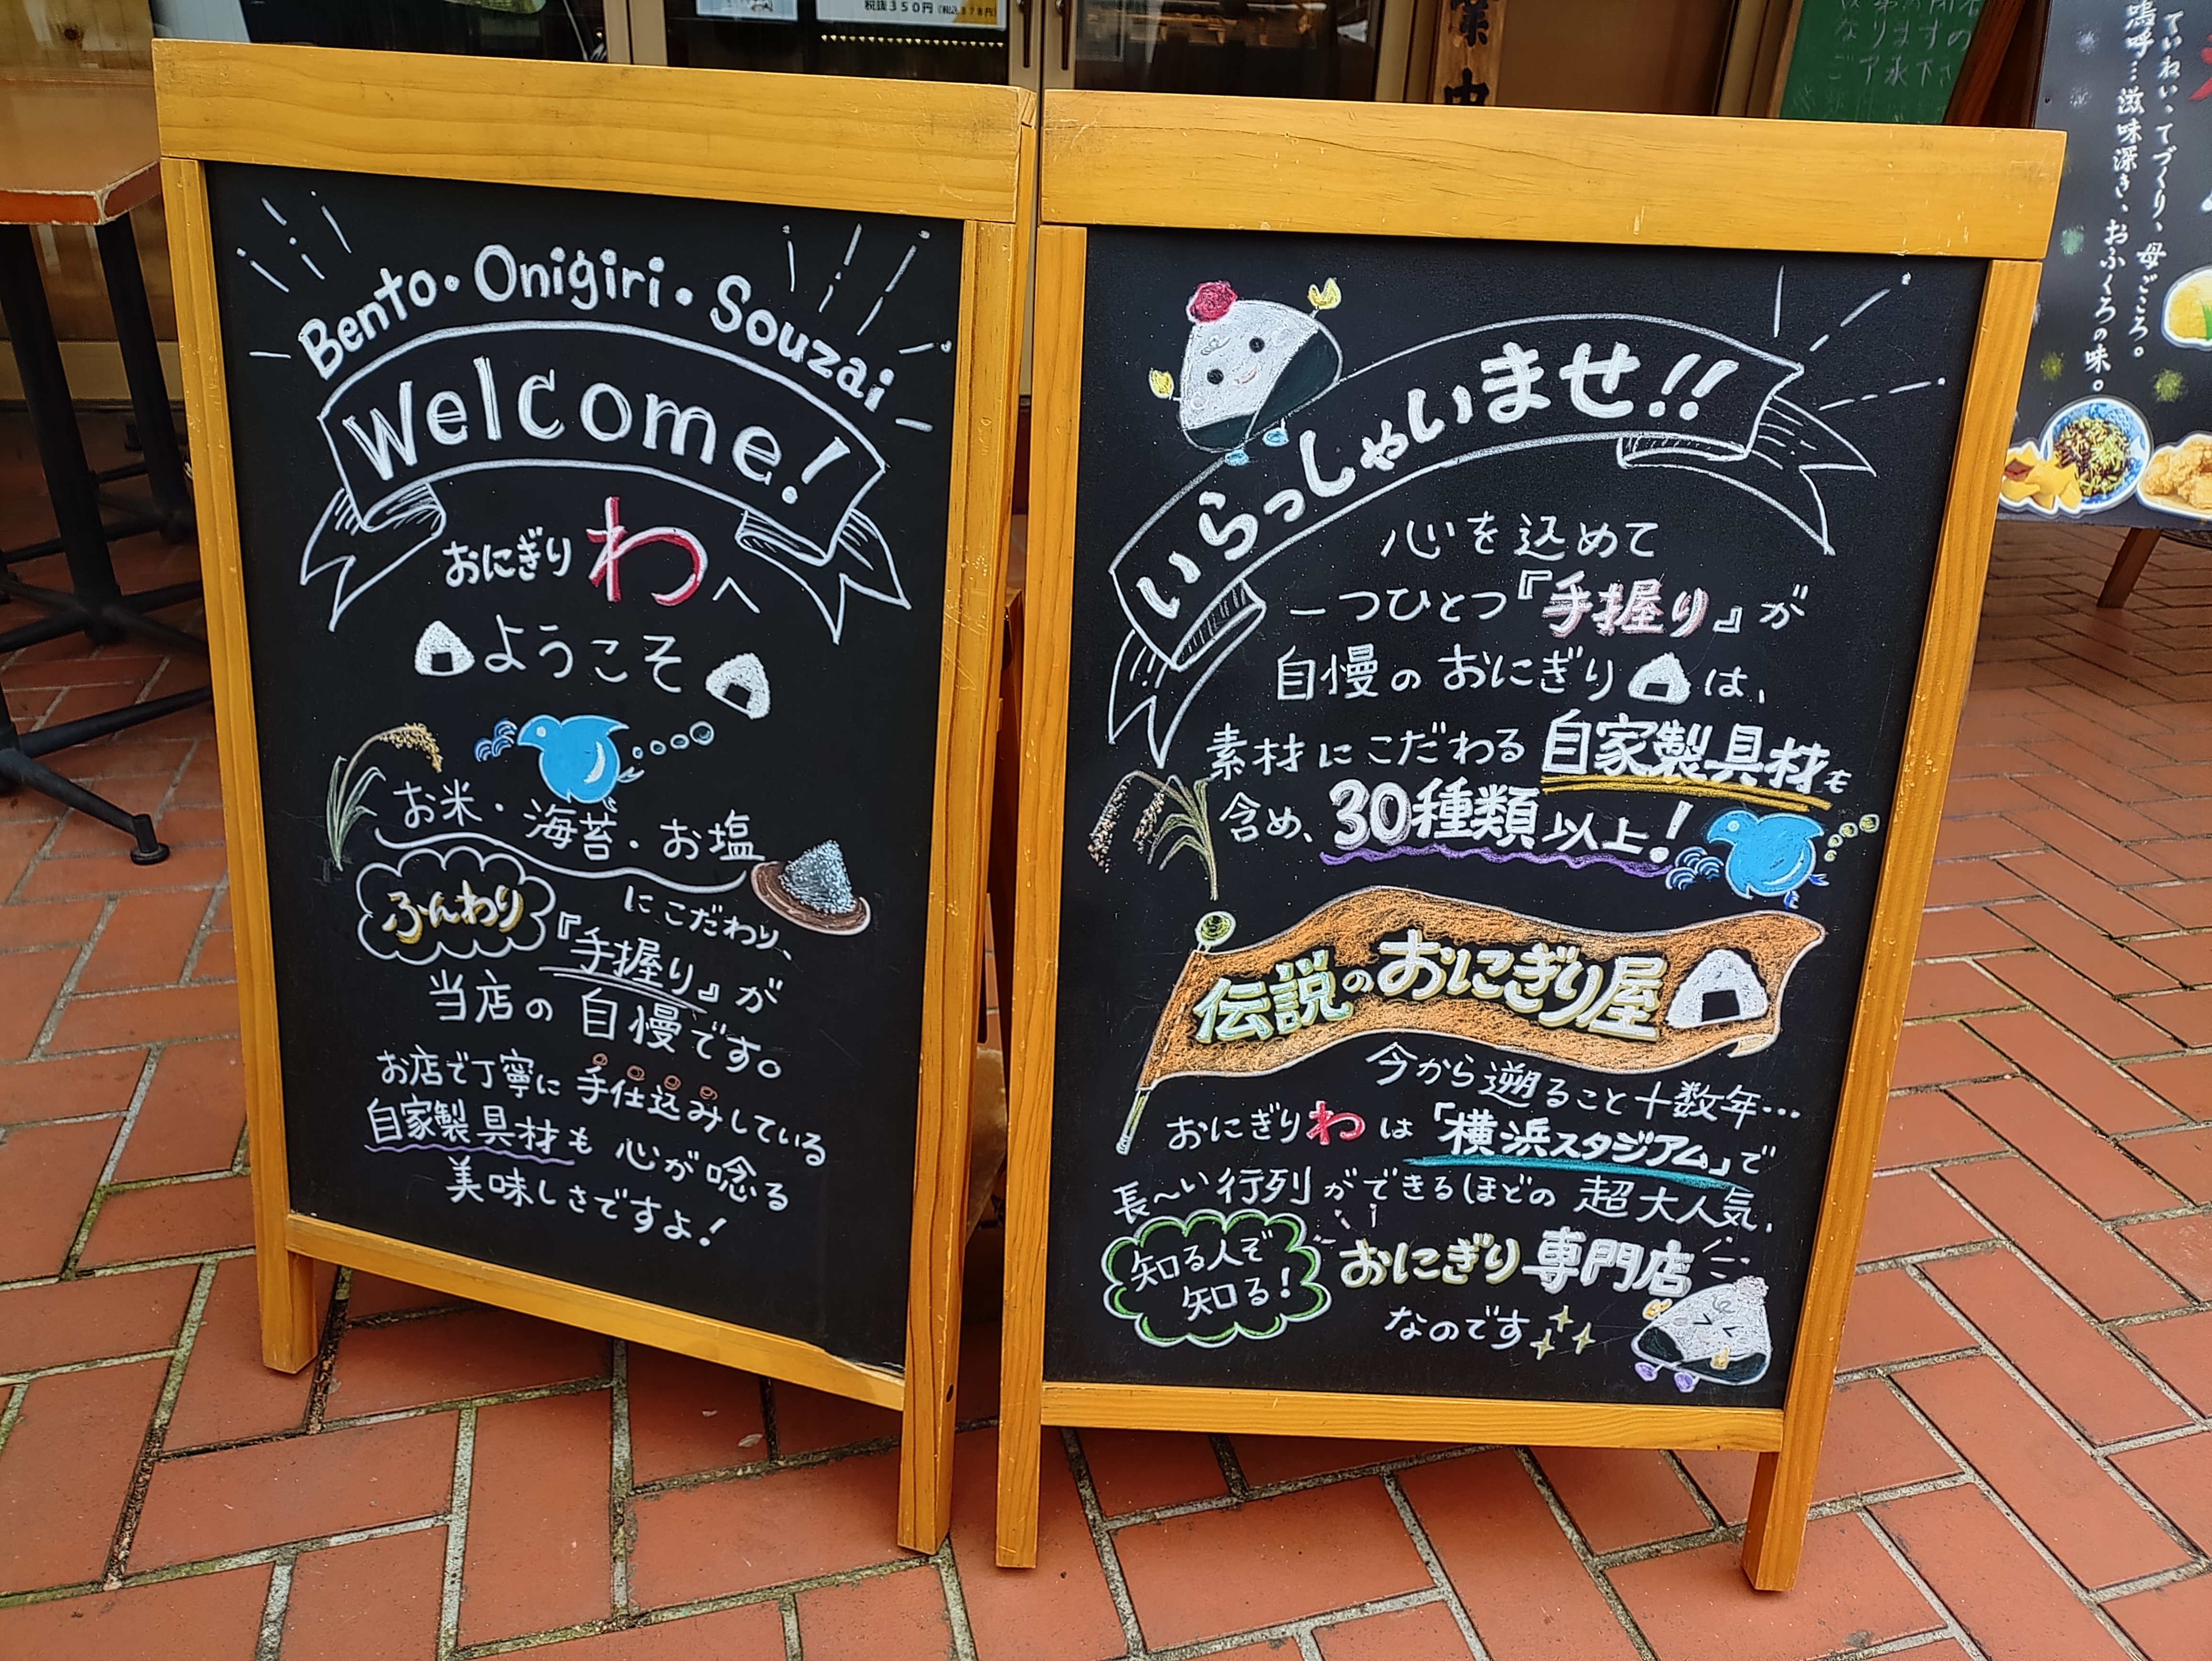 税抜350円(税込378円)
業中
Bento・Onigiri・Souzai
Welcome!
おにぎり わ へ
ようこそ
お米・海苔・お塩
にこだわり、
ふんわり『手握り』が
当店の自慢です。
お店で丁寧に手仕込みしている
自家製具材も心が唸る
美味しさですよ!
いらっしゃいませ!!
心を込めて
一つひとつ『手握り』が
自慢のおにぎりは、
素材にこだわる自家製具材も
含め、30種類以上!
伝説のおにぎり屋
今から遡ること十数年…
おにぎりわは「横浜スタジアム」で
長〜い行列ができるほどの超大人気、
知る人ぞ
知る!
おにぎり専門店
なのです
ていねい、てづくり、母ごころ。
嗚呼…滋味深き、おふくろの味。